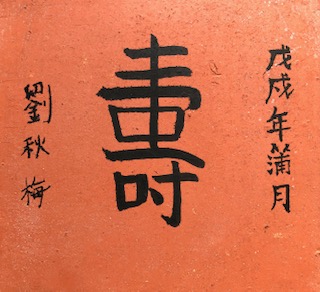 戊戌年蒲月
壽
劉秋梅